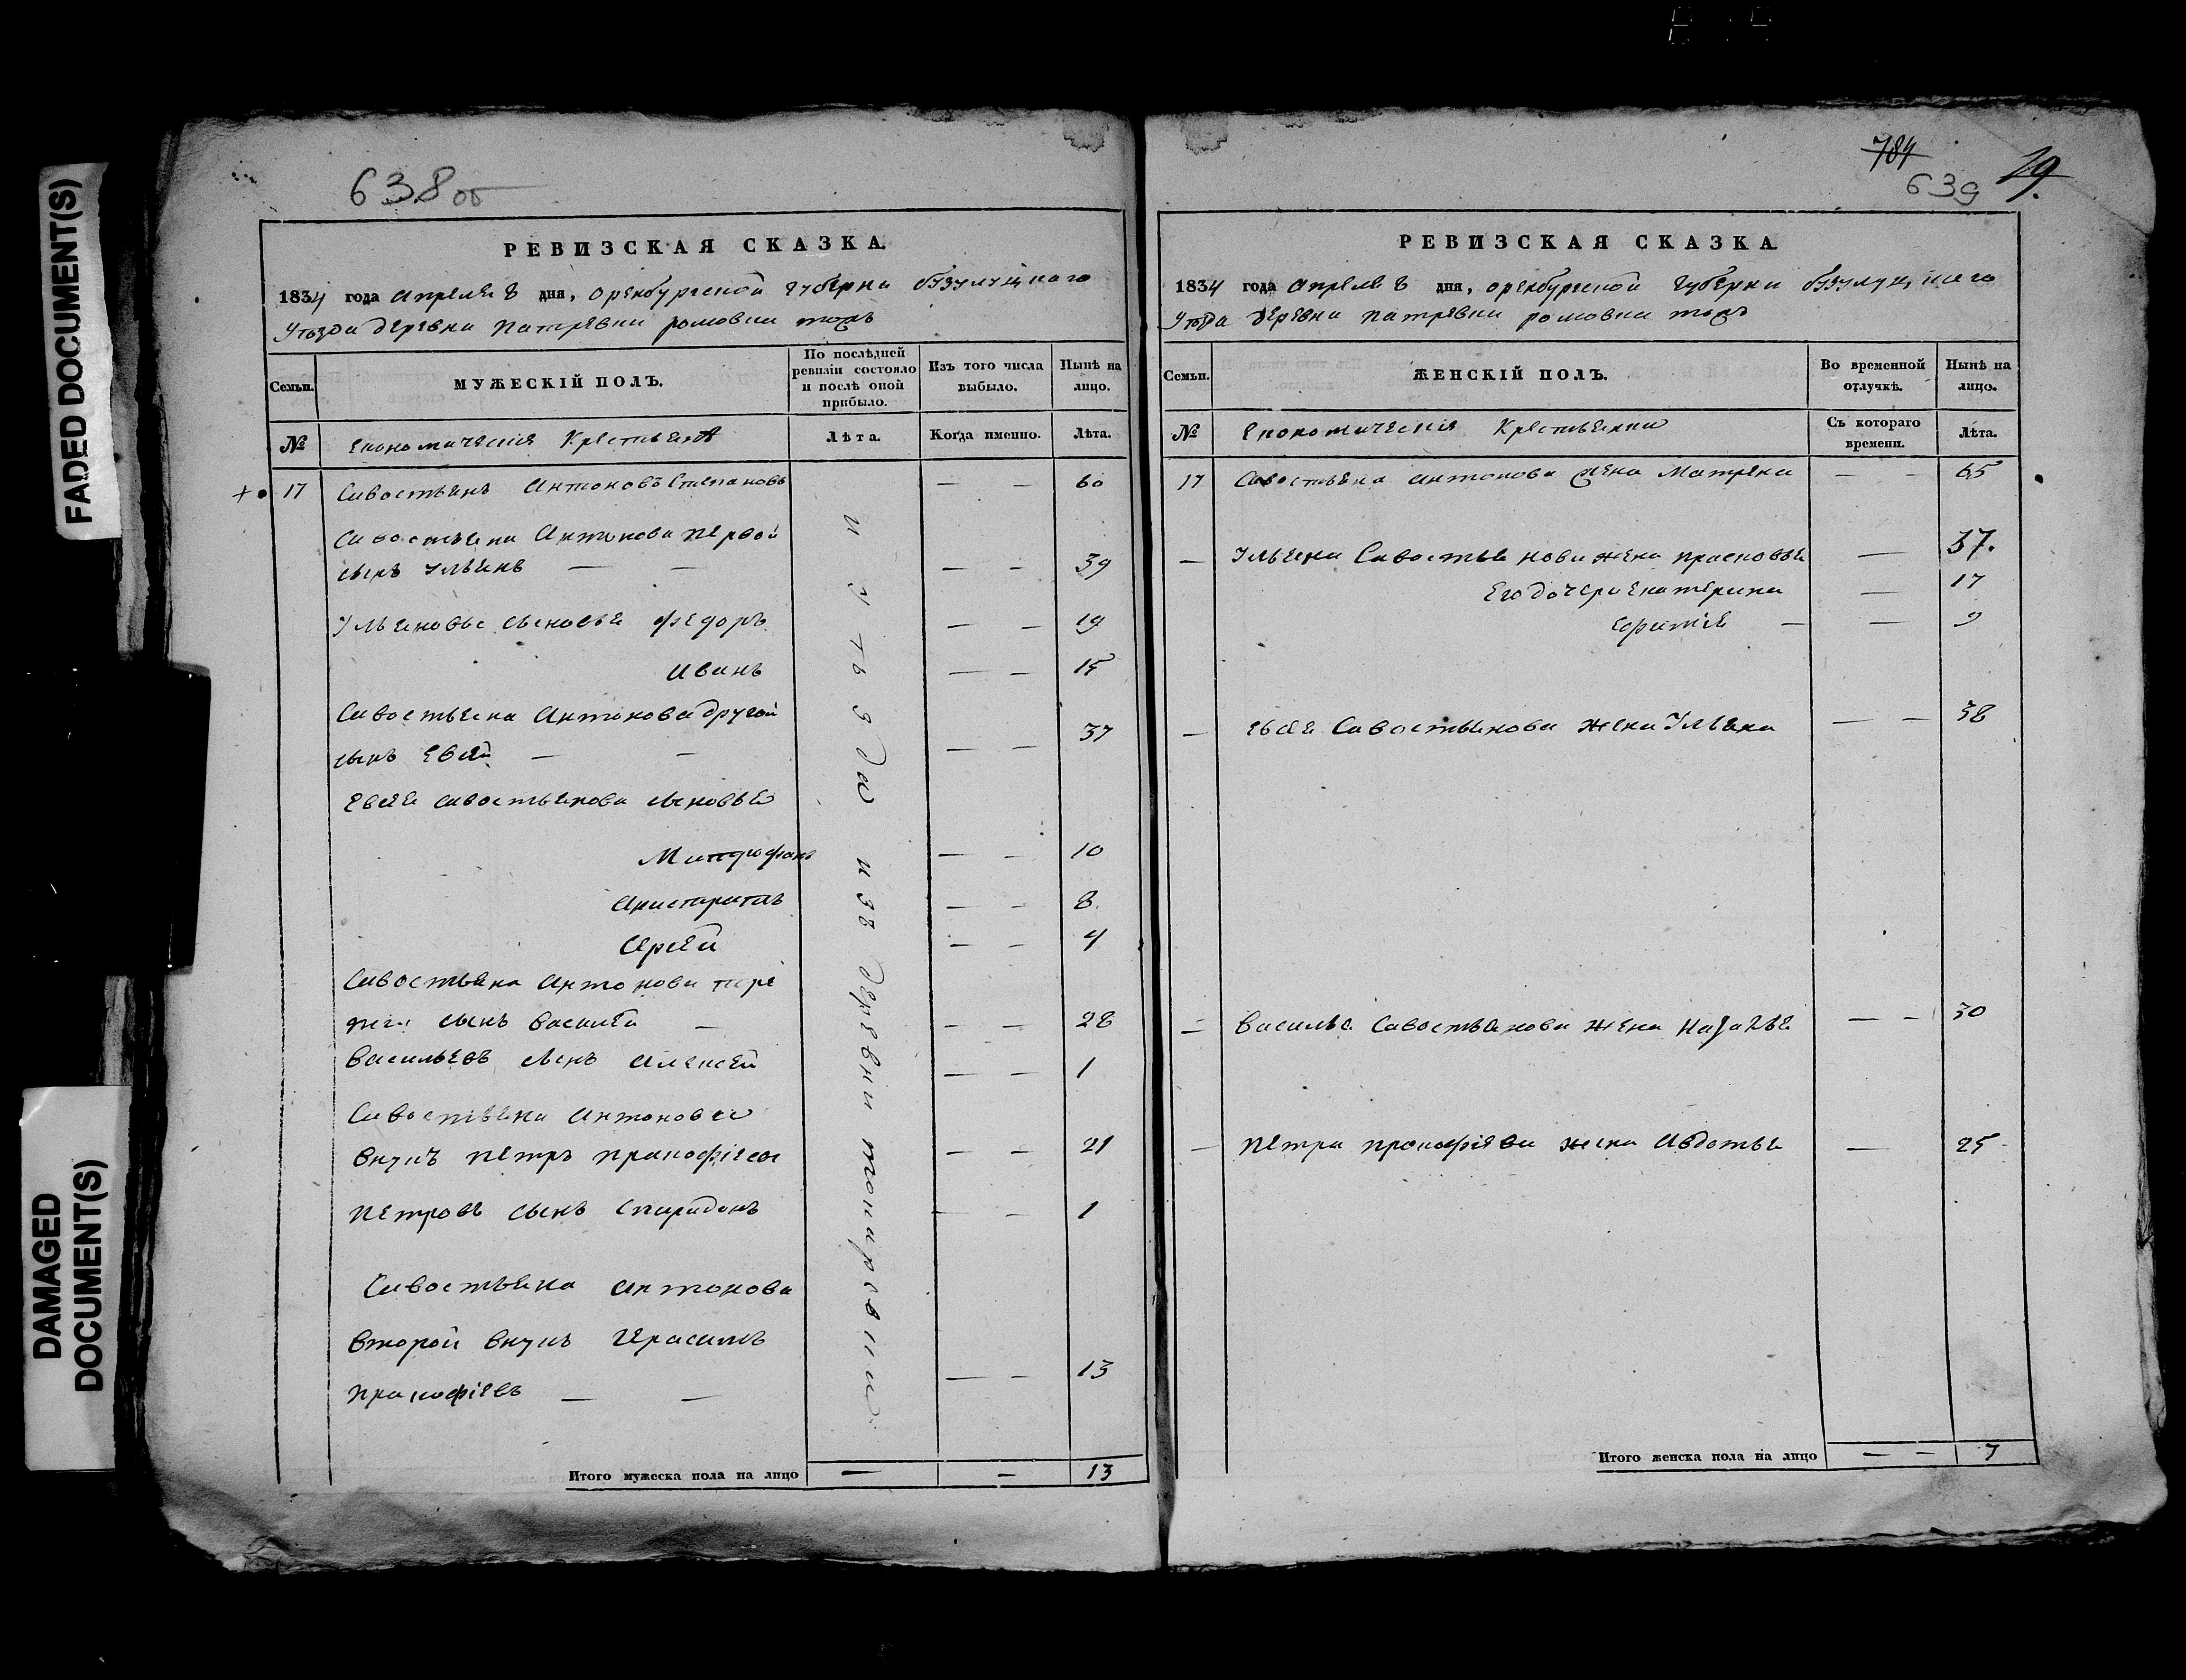 FADED DOCUMENT(S)
DAMAGED DOCUMENT(S)
638 об
РЕВИЗСКАЯ СКАЗКА.
1834 года Апреля 8 дня, Оренбургской Губерни Бузулуцкаго
Уѣзда деревни
Семьи.
МУЖЕСКІЙ ПОЛЪ.
По послѣдней ревизіи состояло и послѣ оной прибыло.
Изъ того числа выбыло.
Нынѣ на лицо.
№
Економическія Крестьяня
Лѣта.
Когда именно.
Лѣта.
17 Савостьянъ Антоновъ Степановъ — — 60
Савостьяна Антонова первой
сынъ Ульянъ — — — — 39
Ульяновы сыновья Федоръ — — 19
Иванъ — — 15
Савостьяна Антонова другой
сынъ Евсѣй — — — — 37
Евсѣя Савостьянова сыновья
Митрофанъ — — 10
— — 8.
Сергей — — 4
Савостьяна Антонова
сынъ Василей — — — 28
Васильевъ сынъ Алексей — — 1
Савостьяна Антонова
внукъ Петръ Пракофіевъ — — 21
Петровъ сынъ Спиридонъ — — 1
Савостьяна Антонова
второй внукъ Герасимъ
Пракофіевъ — — — — 13
из деревни
Итого мужеска пола на лицо — — 13
784
639
19.
РЕВИЗСКАЯ СКАЗКА.
1834 года Апреля 8 дня, Оренбургской Губерни Бузулуцкаго
Уѣзда деревни
Семьи.
ЖЕНСКІЙ ПОЛЪ.
Во временной отлучкѣ.
Нынѣ на лицо.
№
Економическія Крестьянки
Съ котораго времени.
Лѣта.
17 Савостьяна Антонова жена Матрена — — 65
— Ульяна Савостьянова жена Прасковья — 37.
Его дочери Екатерина — 17
— — 9
— Евсѣя Савостьянова жена Ульяна — — 38
— Василья Савостьянова жена Наталья — — 30
— Петра Прокофіява жена Авдотья — 25
Итого женска пола на лицо — — 7